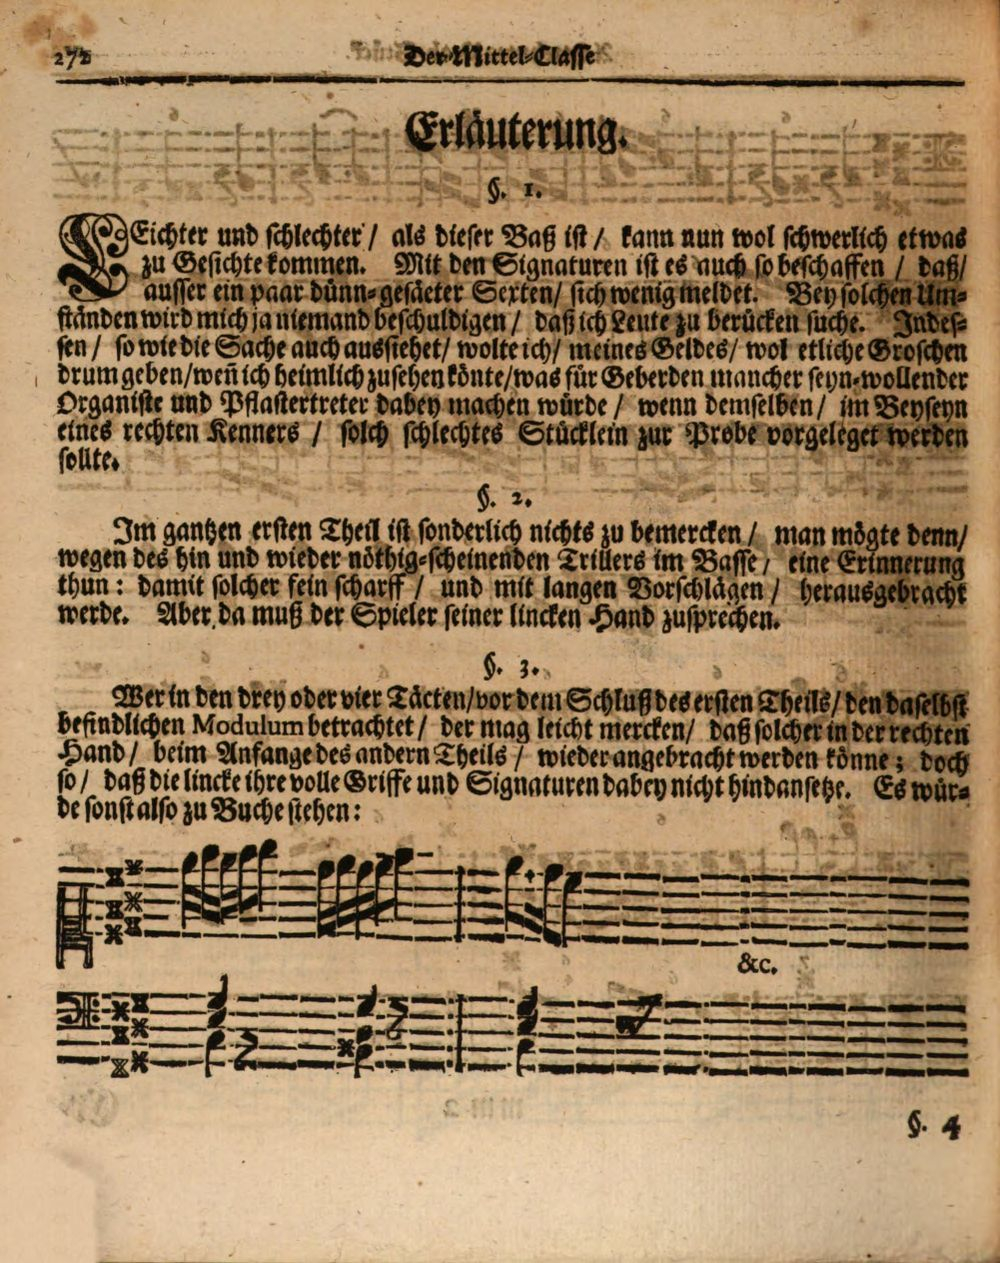 272 Der Mittel-Classe
Erläuterung.
§. 1.
LEichter und schlechter / als dieser Baß ist / kann nun wol schwerlich etwas
zu Gesichte kommen. Mit den Signaturen ist es auch so beschaffen / daß /
ausser ein paar dünn-gesäeter Sexten / sich wenig meldet. Bey solchen Um-
ständen wird mich ja niemand beschuldigen / daß ich Leute zu berücken suche. Indes-
sen / so wie die Sache auch aussiehet / wolte ich / meines Geldes / wol etliche Groschen
drum geben / weñ ich heimlich zusehen könte / was für Geberden mancher seyn-wollender
Organiste und Pflastertreter dabey machen würde / wenn demselben / im Beyseyn
eines rechten Kenners / solch schlechtes Stücklein zur Probe vorgeleget werden
sollte.
§. 2.
Im gantzen ersten Theil ist sonderlich nichts zu bemercken / man mögte denn /
wegen des hin und wieder nöthig-scheinenden Trillers im Basse / eine Erinnerung
thun: damit solcher fein scharff / und mit langen Vorschlägen / herausgebracht
werde. Aber da muß der Spieler seiner lincken Hand zusprechen.
§. 3.
Wer in den drey oder vier Täcten / vor dem Schluß des ersten Theils / den daselbst
befindlichen Modulum betrachtet / der mag leicht mercken / daß solcher in der rechten
Hand / beim Anfange des andern Theils / wieder angebracht werden könne; doch
so / daß die lincke ihre volle Griffe und Signaturen dabey nicht hindansetze. Es wür-
de sonst also zu Buche stehen:
&c.
§. 4